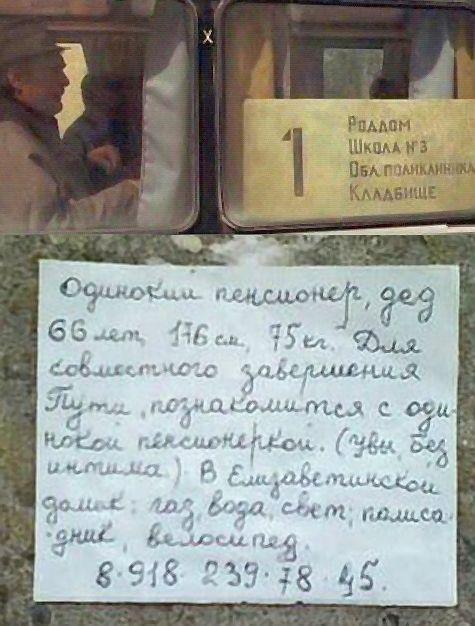 х
1
Роддом
Школа №3
Обл. поликлиника
Кладбище
Одинокий пенсионер, дед
66 лет, 176 см, 75 кг. Для
совместного завершения
Пути, познакомится с оди-
нокой пенсионеркой. (Увы, без
интима.) В Елизаветинской
домик: газ, вода, свет; палиса-
дник, велосипед.
8-918-239-78-45.